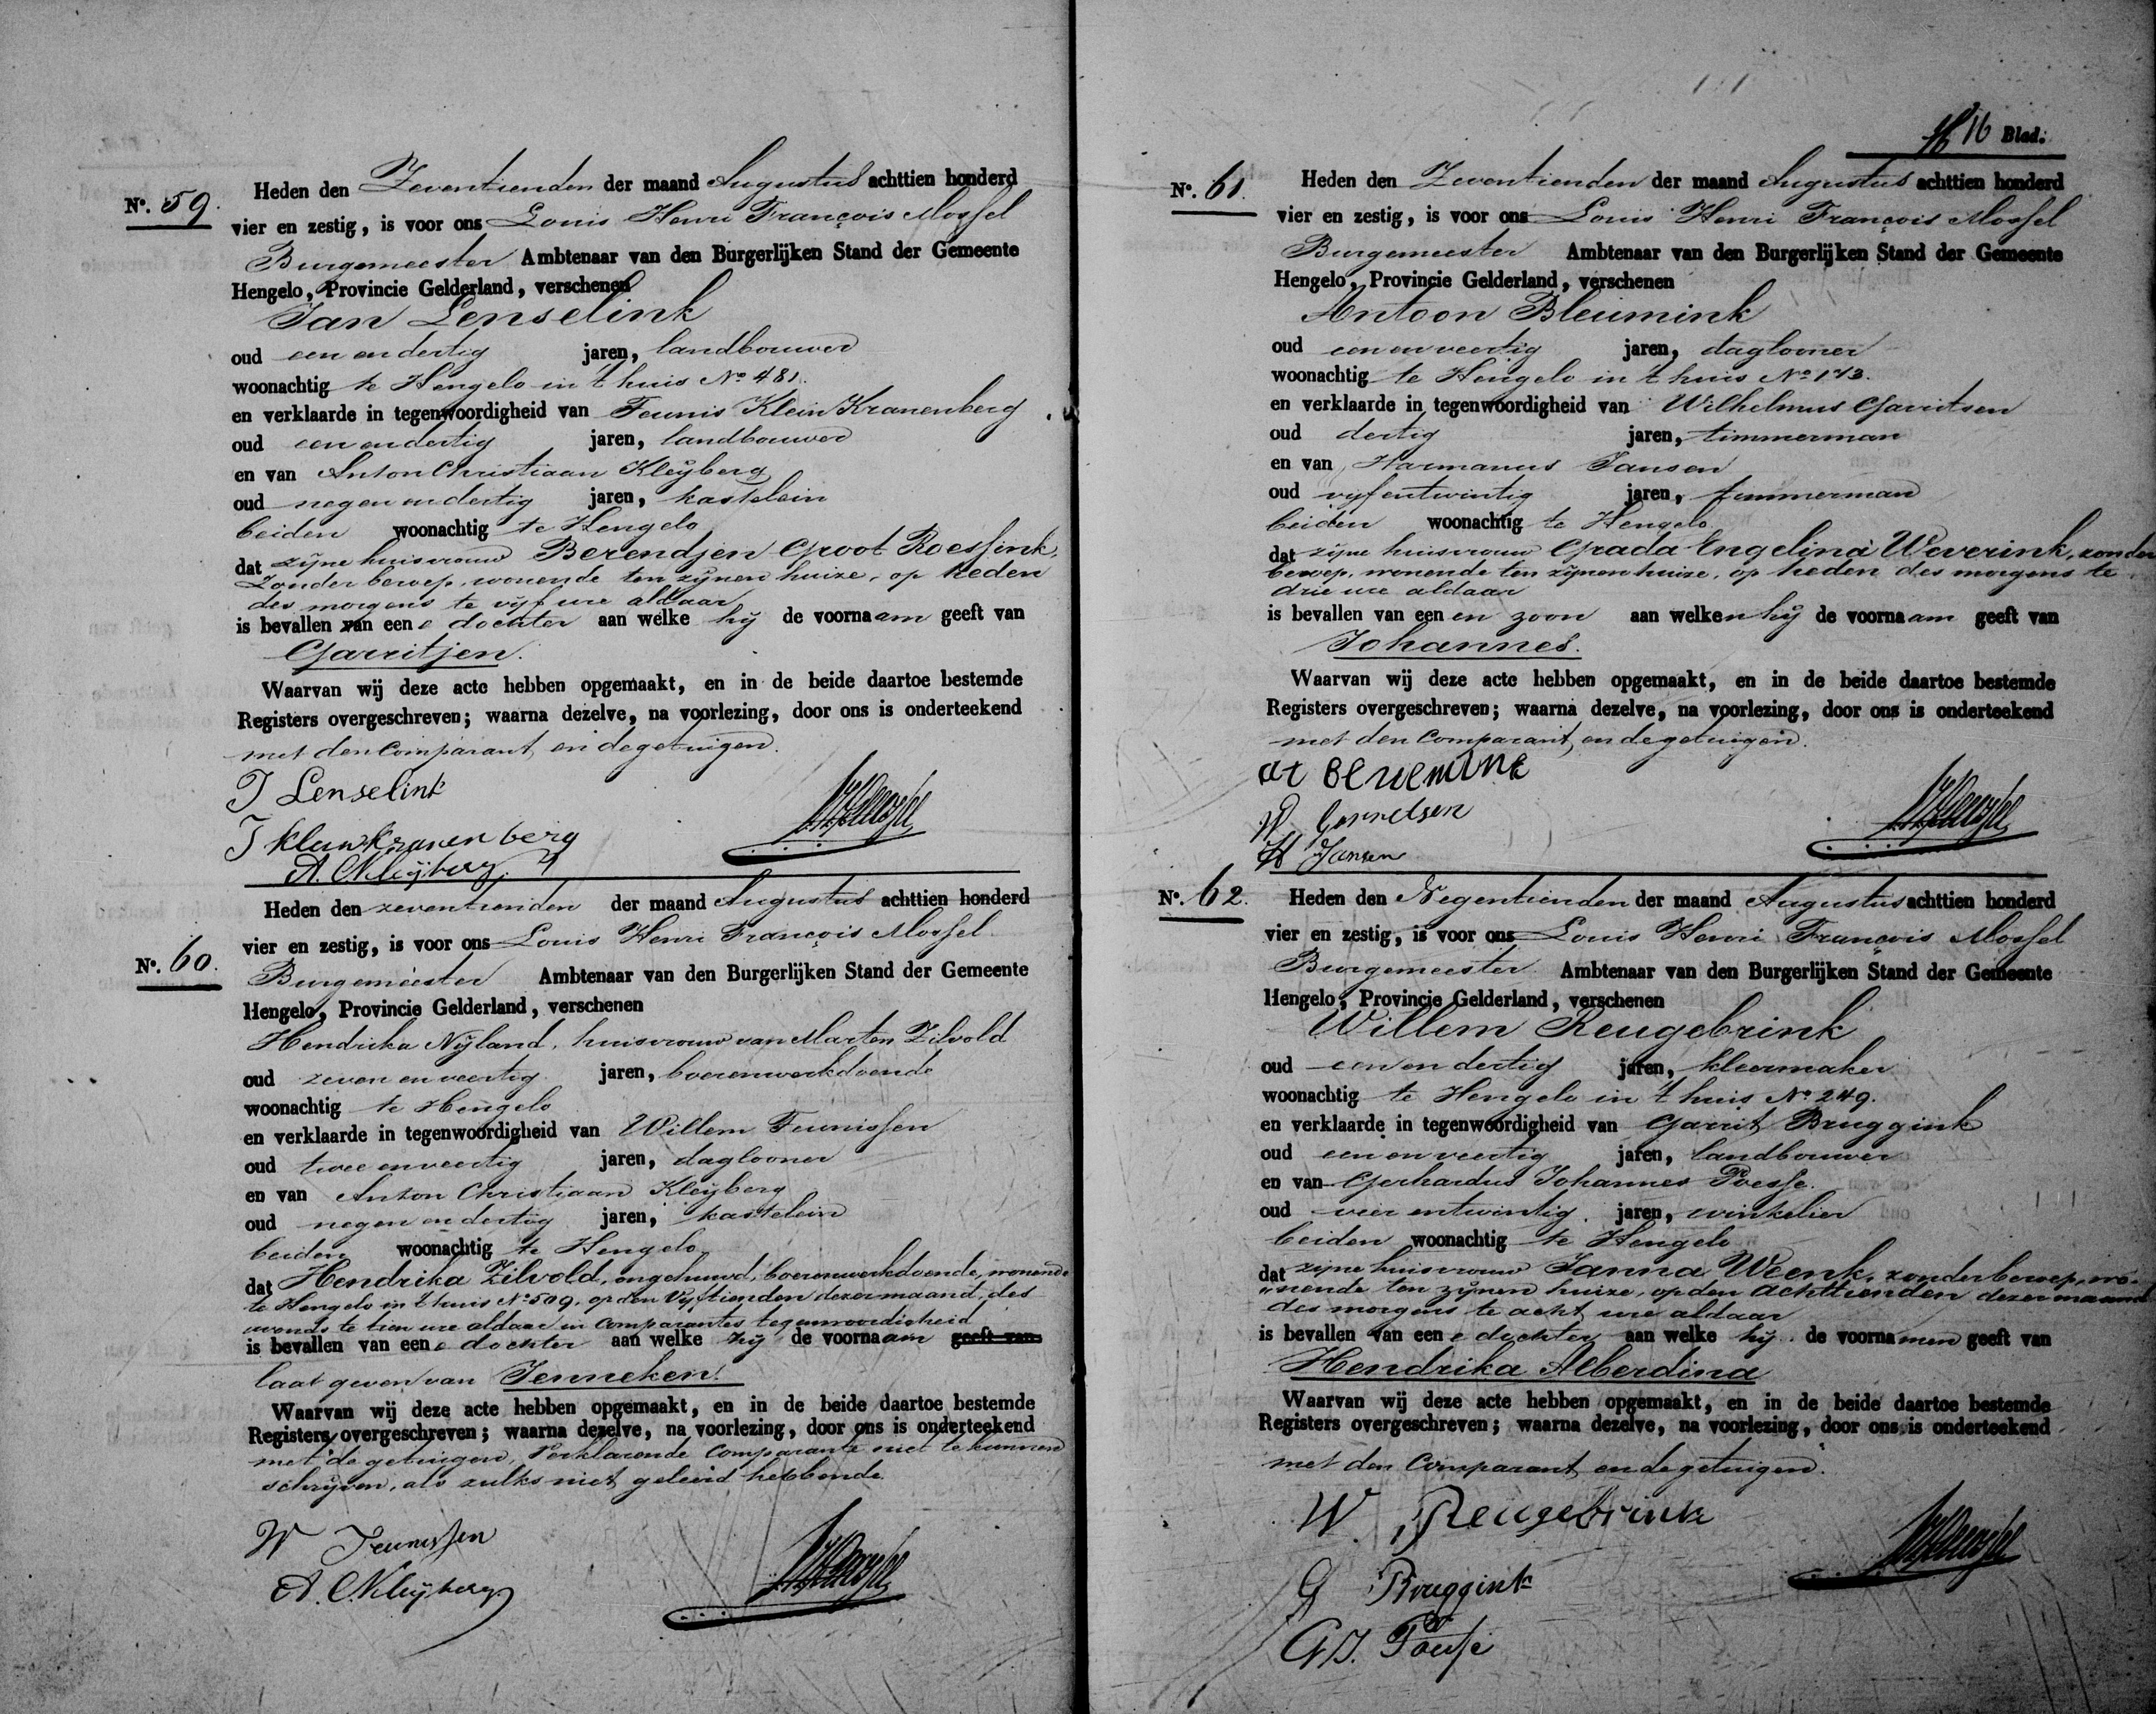 No. 59.
Heden den Zeventienden der maand Augustus achttien honderd
vier en zestig, is voor ons Louis Henri François Mossel
Burgemeester Ambtenaar van den Burgerlijken Stand der Gemeente
Hengelo, Provincie Gelderland, verschenen
Jan Lenselink
oud een en dertig jaren, landbouwer
woonachtig te Hengelo in 't huis No 481.
en verklaarde in tegenwoordigheid van Teunis Klein Kranenberg
oud een en dertig jaren, landbouwer
en van Anton Christiaan Kleijberg
oud negen en dertig jaren, kastelein
beiden woonachtig te Hengelo
dat zijne huisvrouw Berendjen Groot Roessink,
zonder beroep, wonende ten zijnen huize, op heden
des morgens te vijf ure aldaar
is bevallen van eene dochter aan welke hij de voornaam geeft van
Garritjen.
Waarvan wij deze acte hebben opgemaakt, en in de beide daartoe bestemde
Registers overgeschreven; waarna dezelve, na voorlezing, door ons is onderteekend
met den Comparant en de getuigen.
J Lenselink
T klein kranenberg
A. C Kleijberg
No. 60.
Heden den zeventienden der maand Augustus achttien honderd
vier en zestig, is voor ons Louis Henri François Mossel
Burgemeester Ambtenaar van den Burgerlijken Stand der Gemeente
Hengelo, Provincie Gelderland, verschenen
Hendrika Nijland, huisvrouw van Marten Zilvold
oud zeven en veertig jaren, boerenwerkdoende
woonachtig te Hengelo
en verklaarde in tegenwoordigheid van Willem Teunissen
oud twee en veertig jaren, daglooner
en van Anton Christiaan Kleijberg
oud negen en dertig jaren, kastelein
beiden woonachtig te Hengelo
dat Hendrika Zilvold, ongehuwd, boerenwerkdoende, wonende
te Hengelo in 't huis No 509, op den Vijftienden dezer maand, des
avonds te tien ure aldaar in Comparantes tegenwoordigheid
is bevallen van eene dochter aan welke zij de voornaam geeft van
laat geven van Jenneken.
Waarvan wij deze acte hebben opgemaakt, en in de beide daartoe bestemde
Registers overgeschreven; waarna dezelve, na voorlezing, door ons is onderteekend
met de getuigen, Verklarende Comparante niet te kunnen
schrijven, als zulks niet geleerd hebbende.
W Teunissen
A. C Kleijberg
16 Blad.
No. 61.
Heden den Zeventienden der maand Augustus achttien honderd
vier en zestig, is voor ons Louis Henri François Mossel
Burgemeester Ambtenaar van den Burgerlijken Stand der Gemeente
Hengelo, Provincie Gelderland, verschenen
Antoon Bleumink
oud een en veertig jaren, daglooner
woonachtig te Hengelo in 't huis No 173.
en verklaarde in tegenwoordigheid van Wilhelmus Garritsen
oud dertig jaren, timmerman
en van Harmanus Jansen
oud vijf entwintig jaren, timmerman
beiden woonachtig te Hengelo
dat zijne huisvrouw Grada Engelina Weverink, zonder
beroep, wonende ten zijnen huize, op heden des morgens te
drie ure aldaar
is bevallen van een en zoon aan welken hij de voornaam geeft van
Johannes.
Waarvan wij deze acte hebben opgemaakt, en in de beide daartoe bestemde
Registers overgeschreven; waarna dezelve, na voorlezing, door ons is onderteekend
met den Comparant en de getuigen.
W Gerretsen
H Jansen
No. 62.
Heden den Negentienden der maand Augustus achttien honderd
vier en zestig, is voor ons Louis Henri François Mossel
Burgemeester Ambtenaar van den Burgerlijken Stand der Gemeente
Hengelo, Provincie Gelderland, verschenen
Willem Reugebrink
oud een en dertig jaren, kleermaker
woonachtig te Hengelo in 't huis No 249.
en verklaarde in tegenwoordigheid van Garrit Bruggink
oud een en veertig jaren, landbouwer
en van Gerhardus Johannes Poesse.
oud vier entwintig jaren, winkelier
beiden woonachtig te Hengelo
dat zijne huisvrouw Janna Weenk, zonder beroep, wo-
nende ten zijnen huize, op den achttienden dezer maand
des morgens te acht ure aldaar
is bevallen van eene dochter aan welke hij de voornamen geeft van
Hendrika Alberdina
Waarvan wij deze acte hebben opgemaakt, en in de beide daartoe bestemde
Registers overgeschreven; waarna dezelve, na voorlezing, door ons is onderteekend
met den Comparant en de getuigen.
W. Reugebrink
G Bruggink
GJ. Poesse